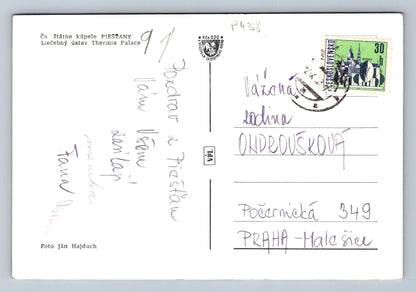 Čs. štátne kúpele PIEŠŤANY
Liečebný ústav Thermia Palace
91
P438
Kčs 0,20
ČESKOSLOVENSKO
30
h
Pozdrav z Piešťan
Vám Všem
zasílají
Fana
VPL
Vážená
rodina
ONDROUŠKOVÁ
Počernická 349
PRAHA-Malešice
Foto Ján Hajduch